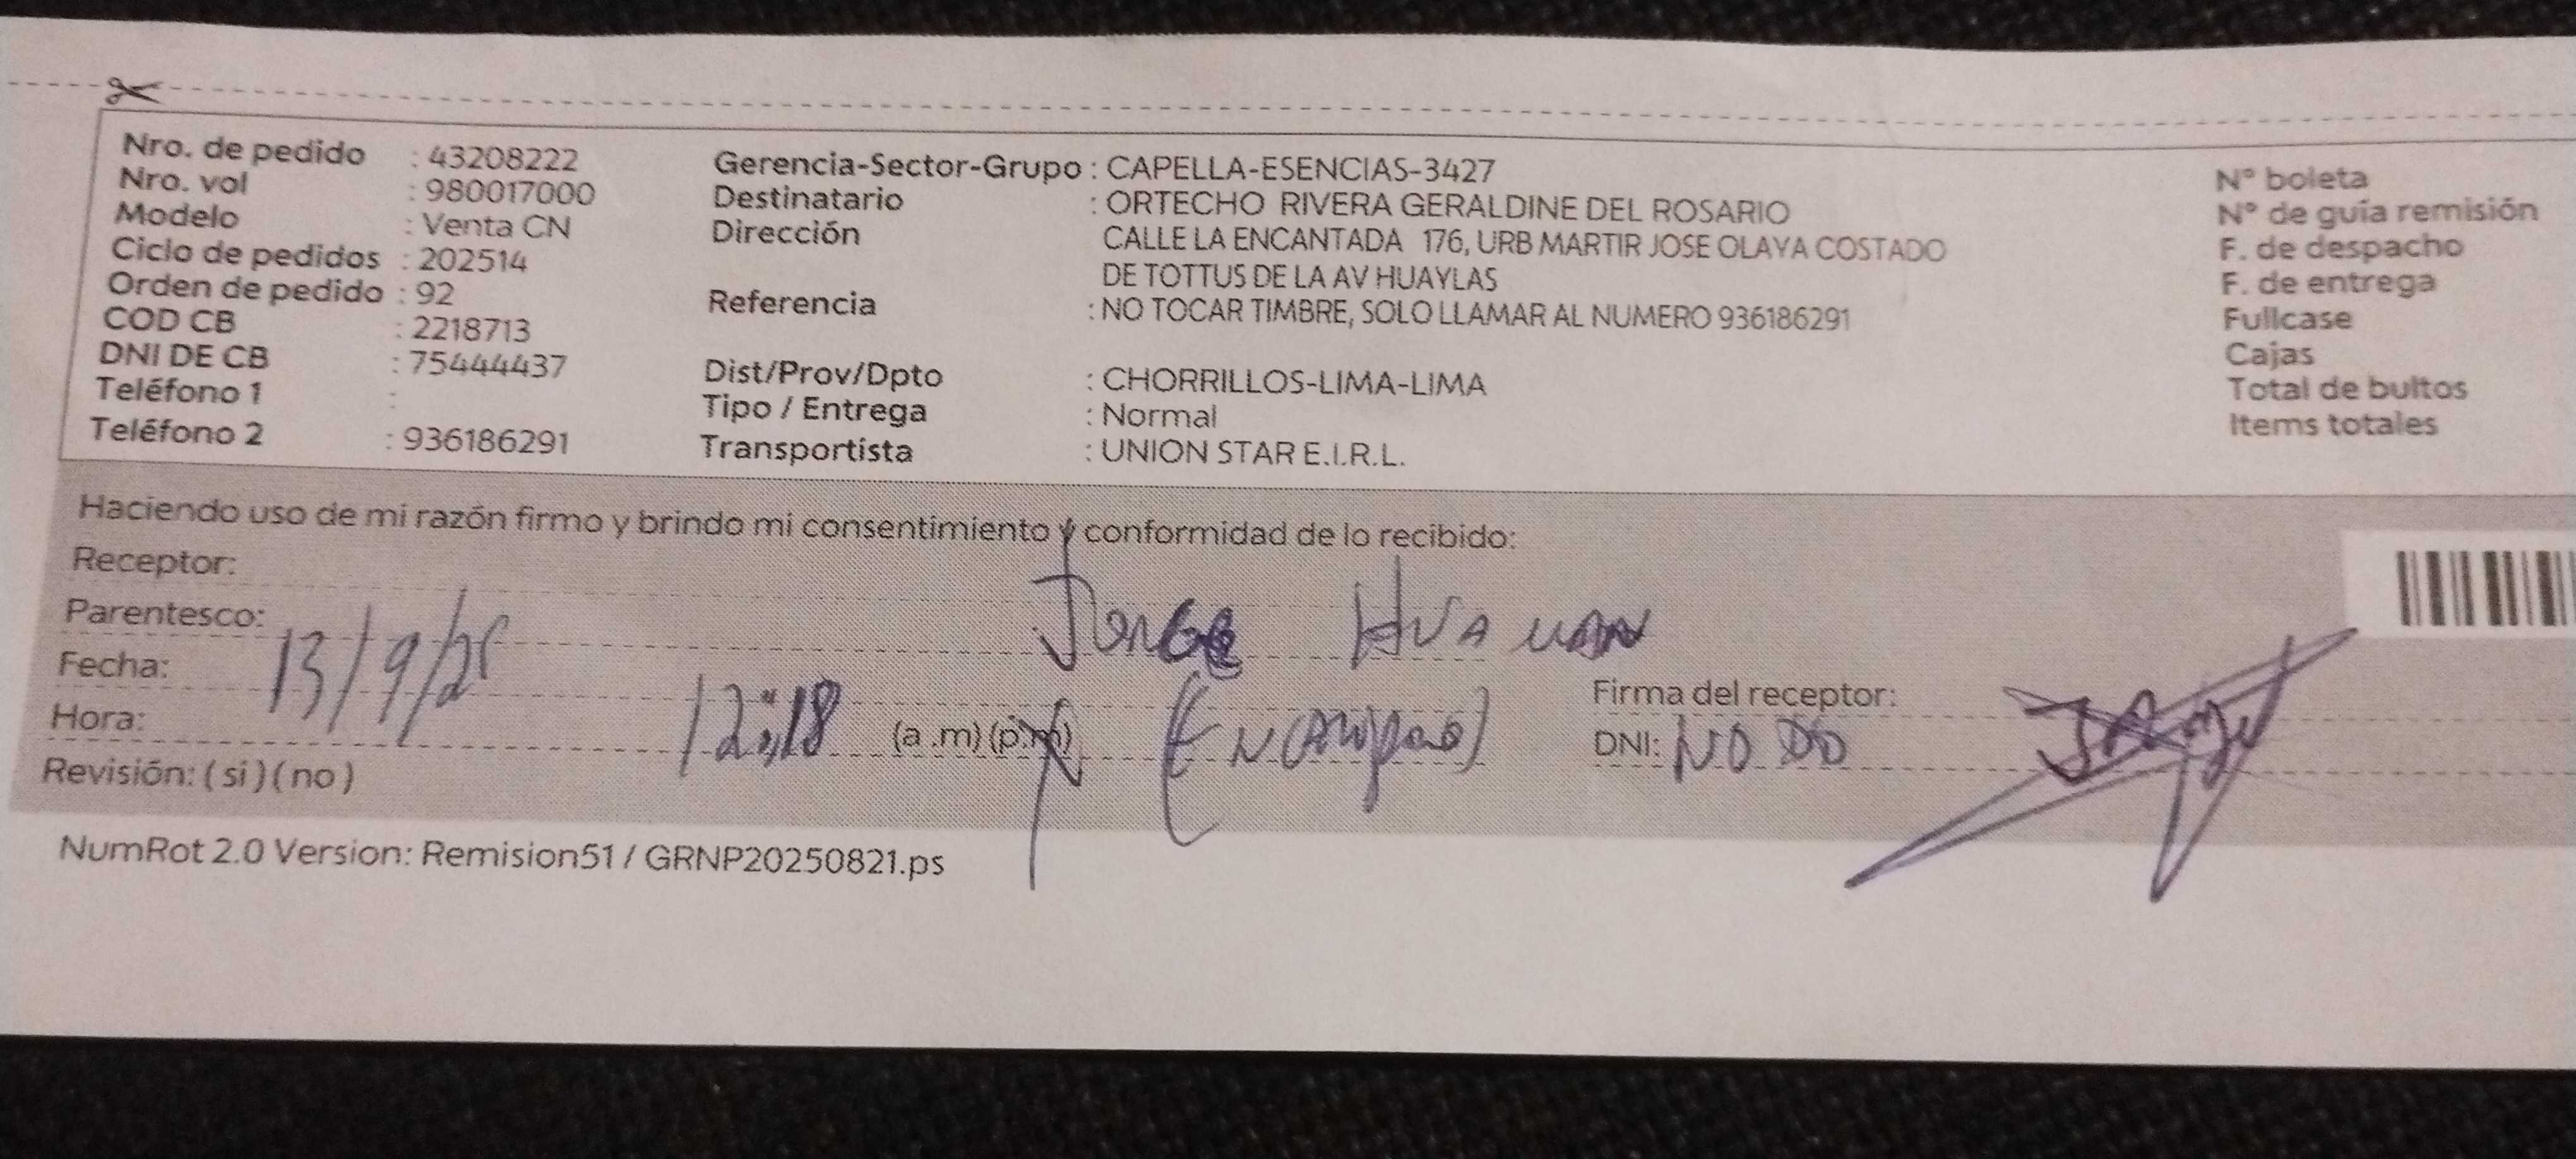 Nro. de pedido : 43208222
Nro. vol : 980017000
Modelo : Venta CN
Ciclo de pedidos : 202514
Orden de pedido : 92
COD CB : 2218713
DNI DE CB : 75444437
Teléfono 1 :
Teléfono 2 : 936186291
Gerencia-Sector-Grupo : CAPELLA-ESENCIAS-3427
Destinatario : ORTECHO RIVERA GERALDINE DEL ROSARIO
Dirección CALLE LA ENCANTADA 176, URB MARTIR JOSE OLAYA COSTADO
DE TOTTUS DE LA AV HUAYLAS
Referencia : NO TOCAR TIMBRE, SOLO LLAMAR AL NUMERO 936186291
Dist/Prov/Dpto : CHORRILLOS-LIMA-LIMA
Tipo / Entrega : Normal
Transportista : UNION STAR E.I.R.L.
N° boleta
N° de guía remisión
F. de despacho
F. de entrega
Fullcase
Cajas
Total de bultos
Items totales
Haciendo uso de mi razón firmo y brindo mi consentimiento y conformidad de lo recibido:
Receptor:
Parentesco: Jorge Huaman
Fecha: 13/9/25
Firma del receptor:
Hora: 12:18 (a .m) (p.m)
DNI: NO DO
Revisión: ( si ) ( no )
NumRot 2.0 Version: Remision51 / GRNP20250821.ps